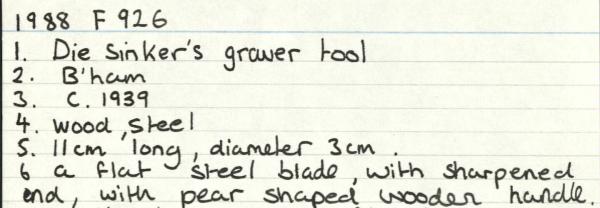 1988 F 926
1. Die Sinker's graver tool
2. B'ham
3. C. 1939
4. wood, steel
5. 11cm long, diameter 3cm.
6 a flat steel blade, with sharpened
end, with pear shaped wooden handle.